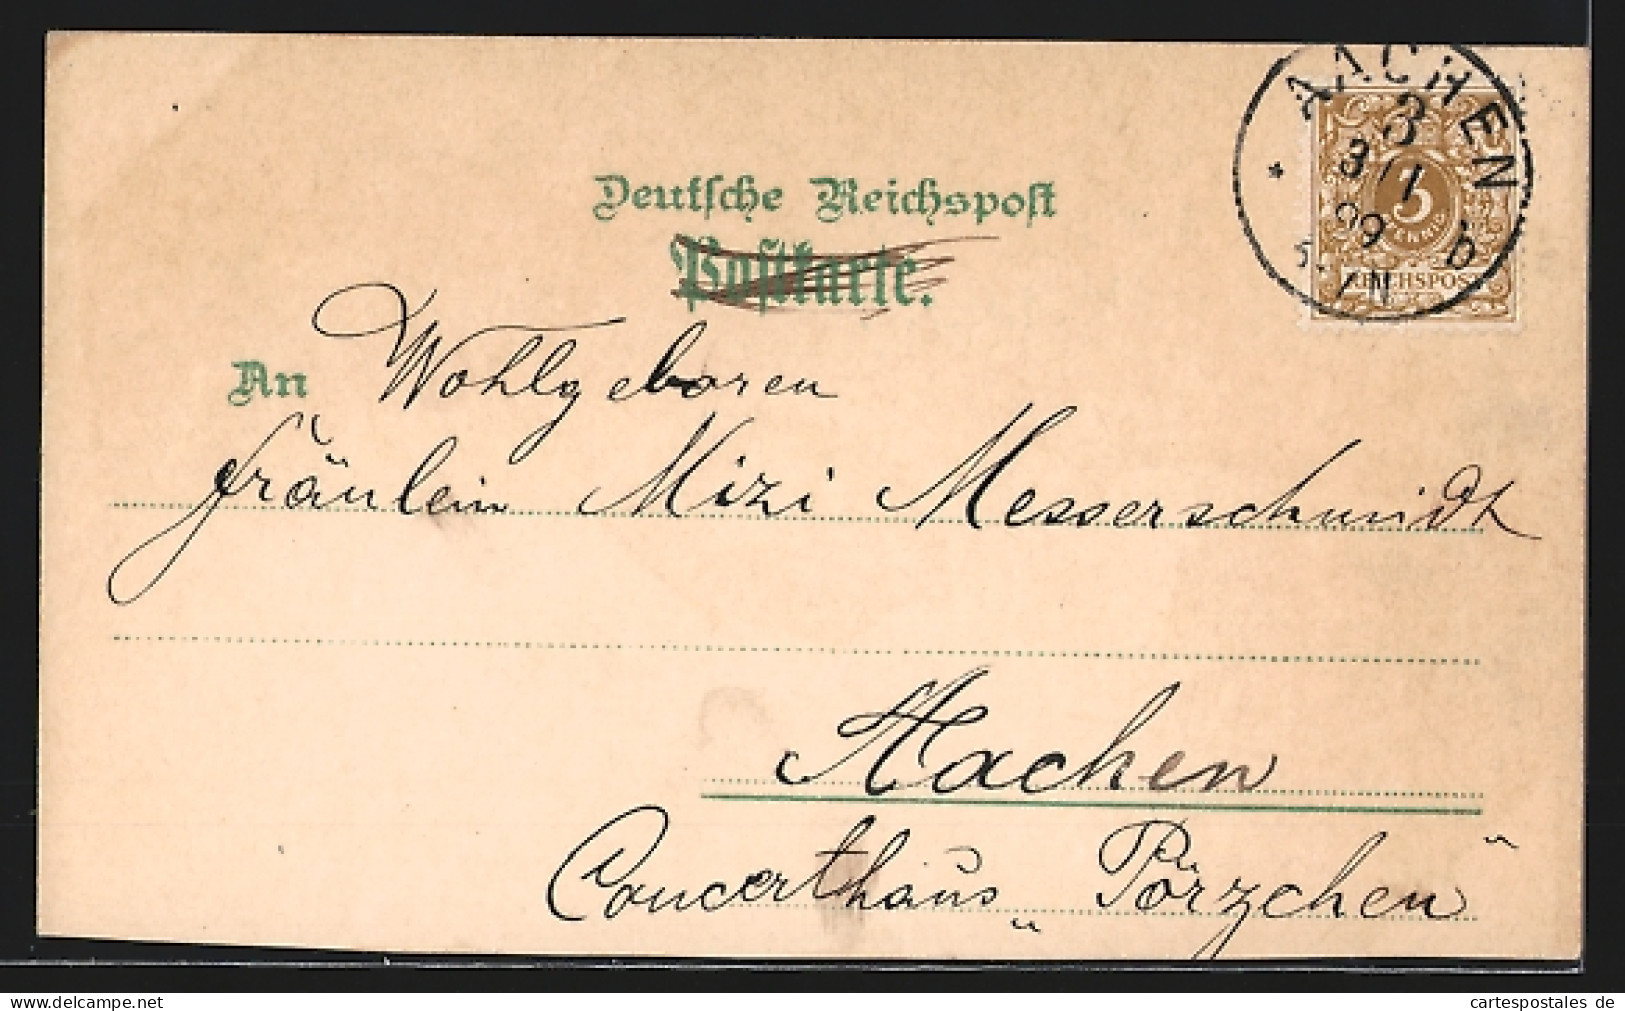 AACHEN
3
3/1
99
5-6 N
* b
3
PFENNIG
REICHSPOST
Deutsche Reichspost
Postkarte.
An Wohlgeboren
Fräulein Mizi Messerschmidt
Aachen
Concerthaus „Pörzchen"
Nachlass-Auktion-Leipzig de
cartespostales de